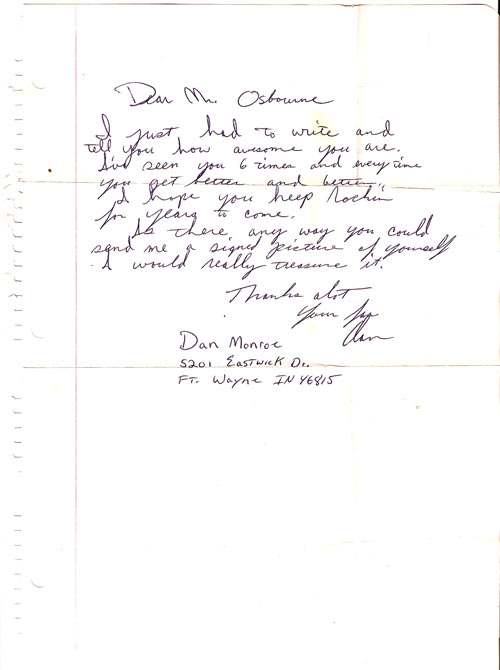 Dear Mr. Osbourne
I just had to write and
tell you how awesome you are.
I've seen you 6 times and every time
you get better and better.
I hope you keep Rockin
for years to come.
Is there any way you could
send me a signed picture of yourself
I would really treasure it.
Thanks alot
Your fan
Dan
Dan Monroe
5201 Eastwick Dr.
Ft. Wayne IN 46815